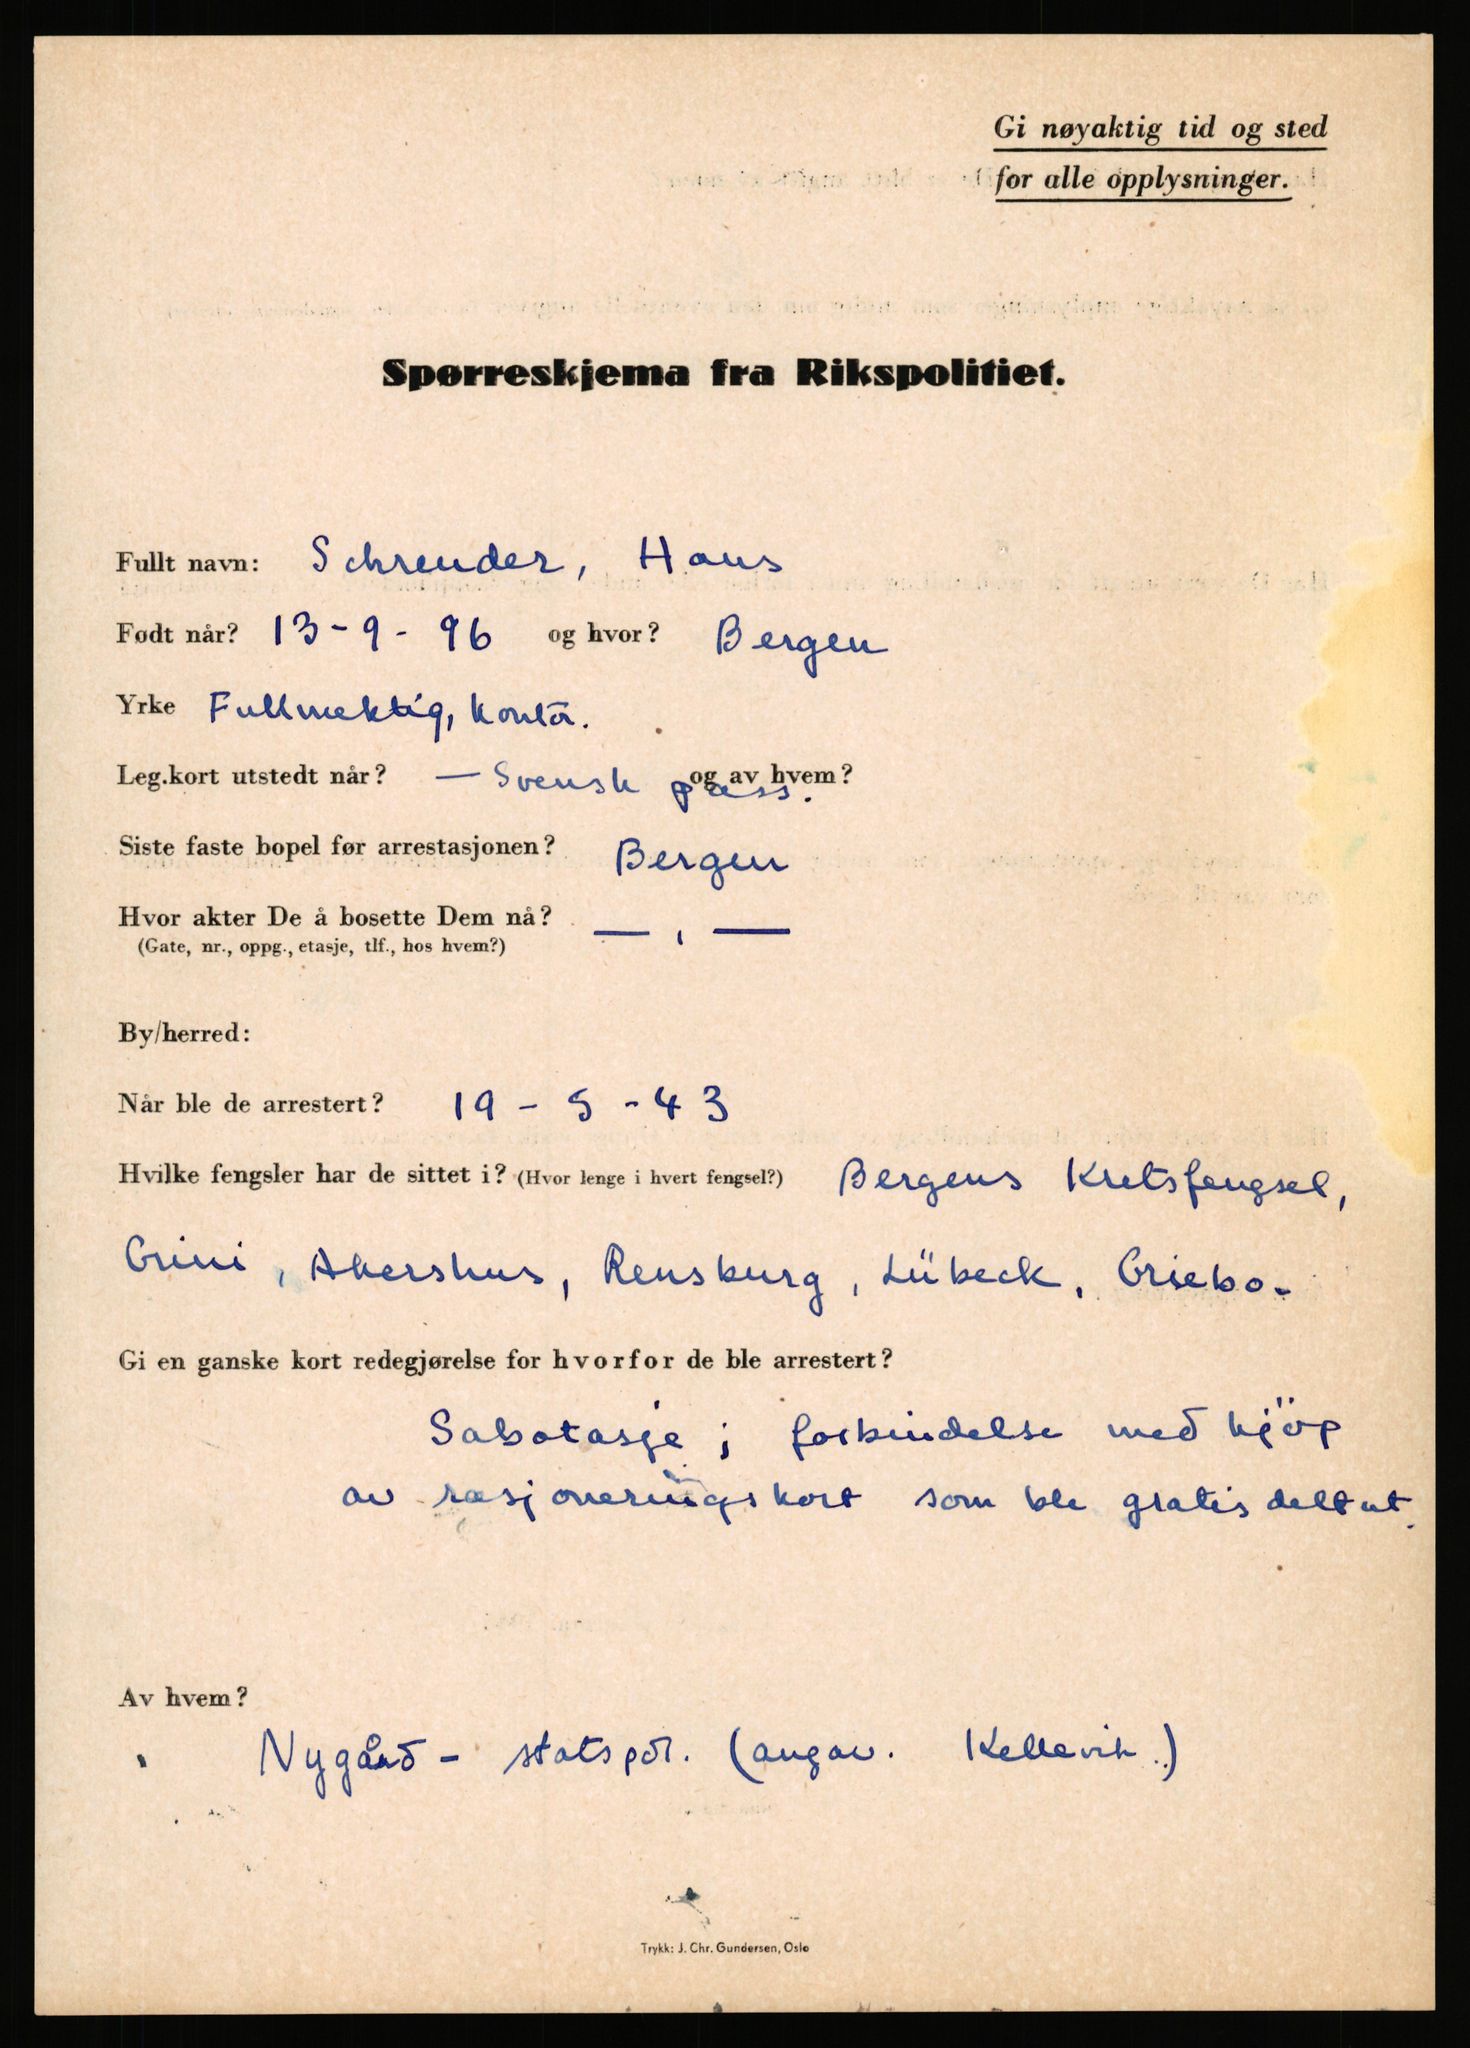 Gi nøyaktig tid og sted
for alle opplysninger.
Spørreskjema fra Rikspolitiet.
Fullt navn: Schreuder, Hans
Født når? 13-9-96 og hvor? Bergen
Yrke Fullmektig, kontor.
Leg.kort utstedt når? — Svensk pass. og av hvem?
Siste faste bopel før arrestasjonen? Bergen
Hvor akter De å bosette Dem nå? — , —
(Gate, nr., oppg., etasje, tlf., hos hvem?)
By/herred:
Når ble de arrestert? 19-5-43
Hvilke fengsler har de sittet i? (Hvor lenge i hvert fengsel?) Bergens Kretsfengsel,
Grini, Akershus, Rensburg, Lübeck, Griebo.
Gi en ganske kort redegjørelse for hvorfor de ble arrestert?
Sabotasje i forbindelse med kjöp
av rasjoneringskort som ble gratis delt ut.
Av hvem?
Nygård - statspol. (angav. Kellevik.)
Trykk: J. Chr. Gundersen, Oslo